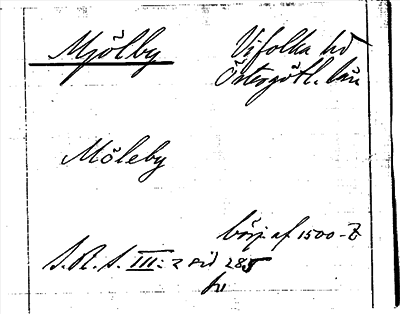 Mjölby
Vifolka hd
Östergötl. län
Möleby
börj. af 1500-t
S.R.S. III: 2 sid 285